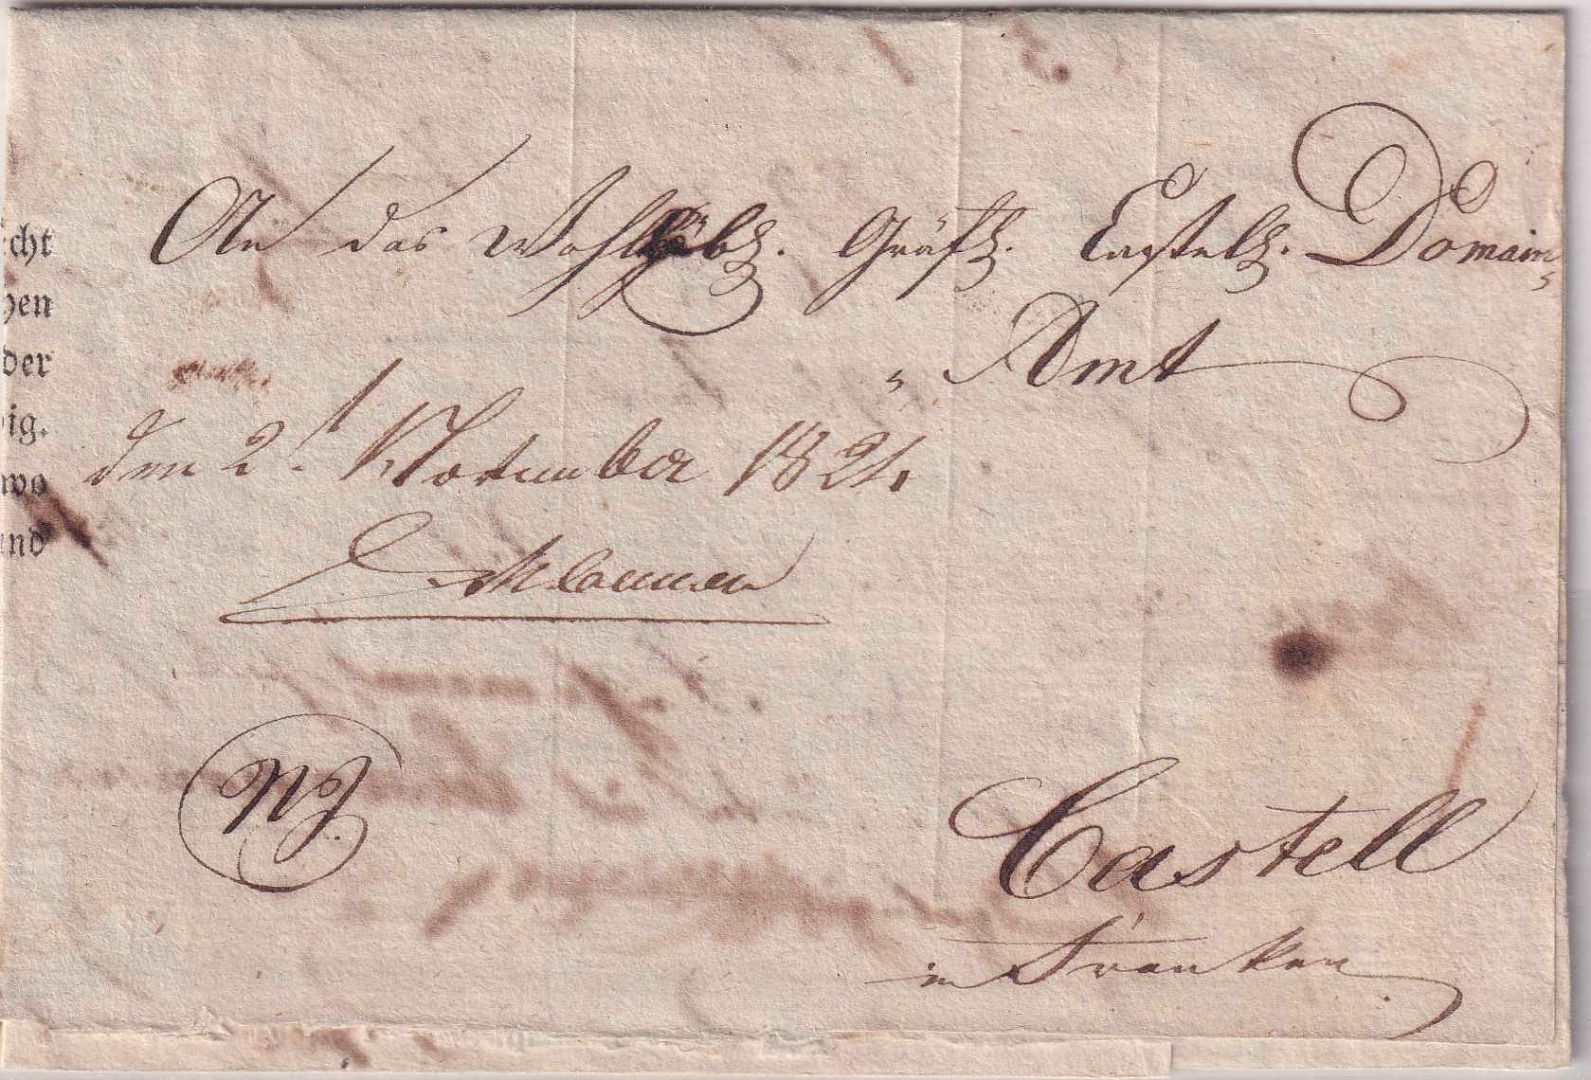 An das Wohllöbl. Gräfl. Castell. Domain„
„Amt
den 2t November 1824
NJ.
Castell
in Franken
cht
hen
der
ig.
wo
und